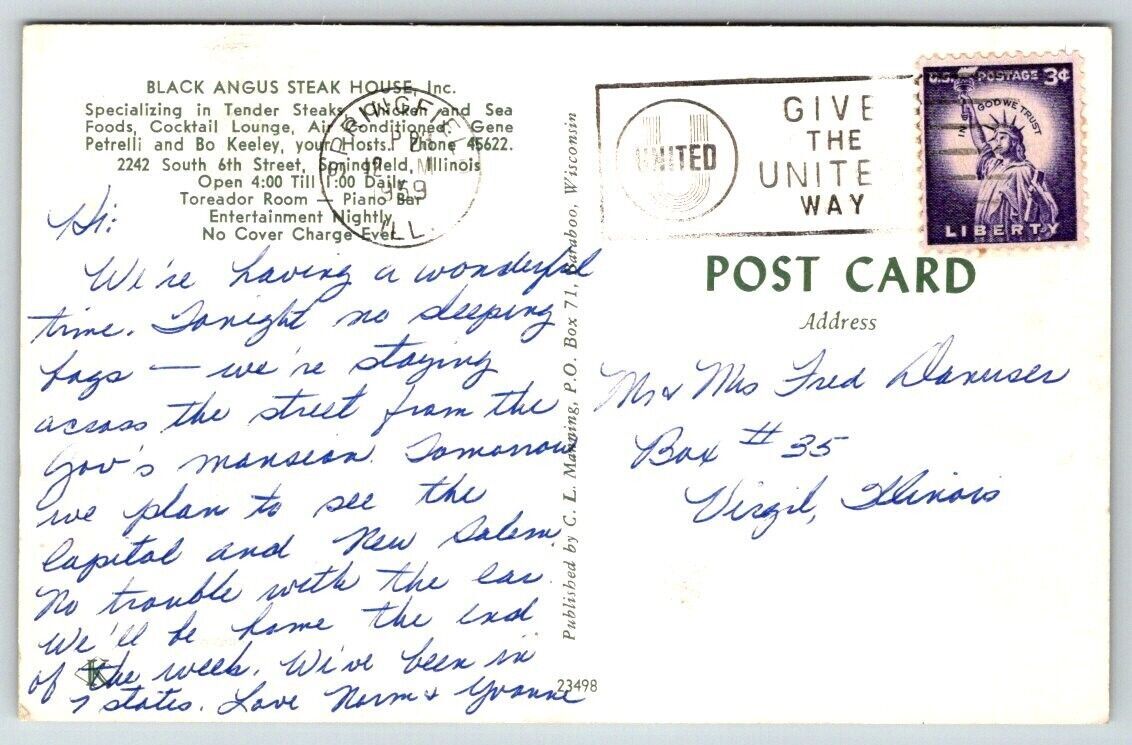 BLACK ANGUS STEAK HOUSE, Inc.
Specializing in Tender Steaks, Chicken and Sea
Foods, Cocktail Lounge, Air Conditioned, Gene
Petrelli and Bo Keeley, your Hosts. Phone 45622.
2242 South 6th Street, Springfield, Illinois
Open 4:00 Till 1:00 Daily
Toreador Room — Piano Bar
Entertainment Nightly
No Cover Charge Ever
Hi:
We're having a wonderful
time. Tonight no sleeping
bags — we're staying
across the street from the
Gov's mansion. Tomorrow
we plan to see the
Capital and New Salem.
No trouble with the car.
We'll be home the end
of the week. We've been in
7 states. Love Norm & Yvonne
K
Published by C. L. Manning, P.O. Box 71, Baraboo, Wisconsin
23498
SPRINGFIEL
PM
1959
ILL.
UNITED
GIVE
THE
UNITE
WAY
U.S. POSTAGE 3¢
IN GOD WE TRUST
LIBERTY
POST CARD
Address
Mr & Mrs Fred Danuser
Box # 35
Virgil, Illinois